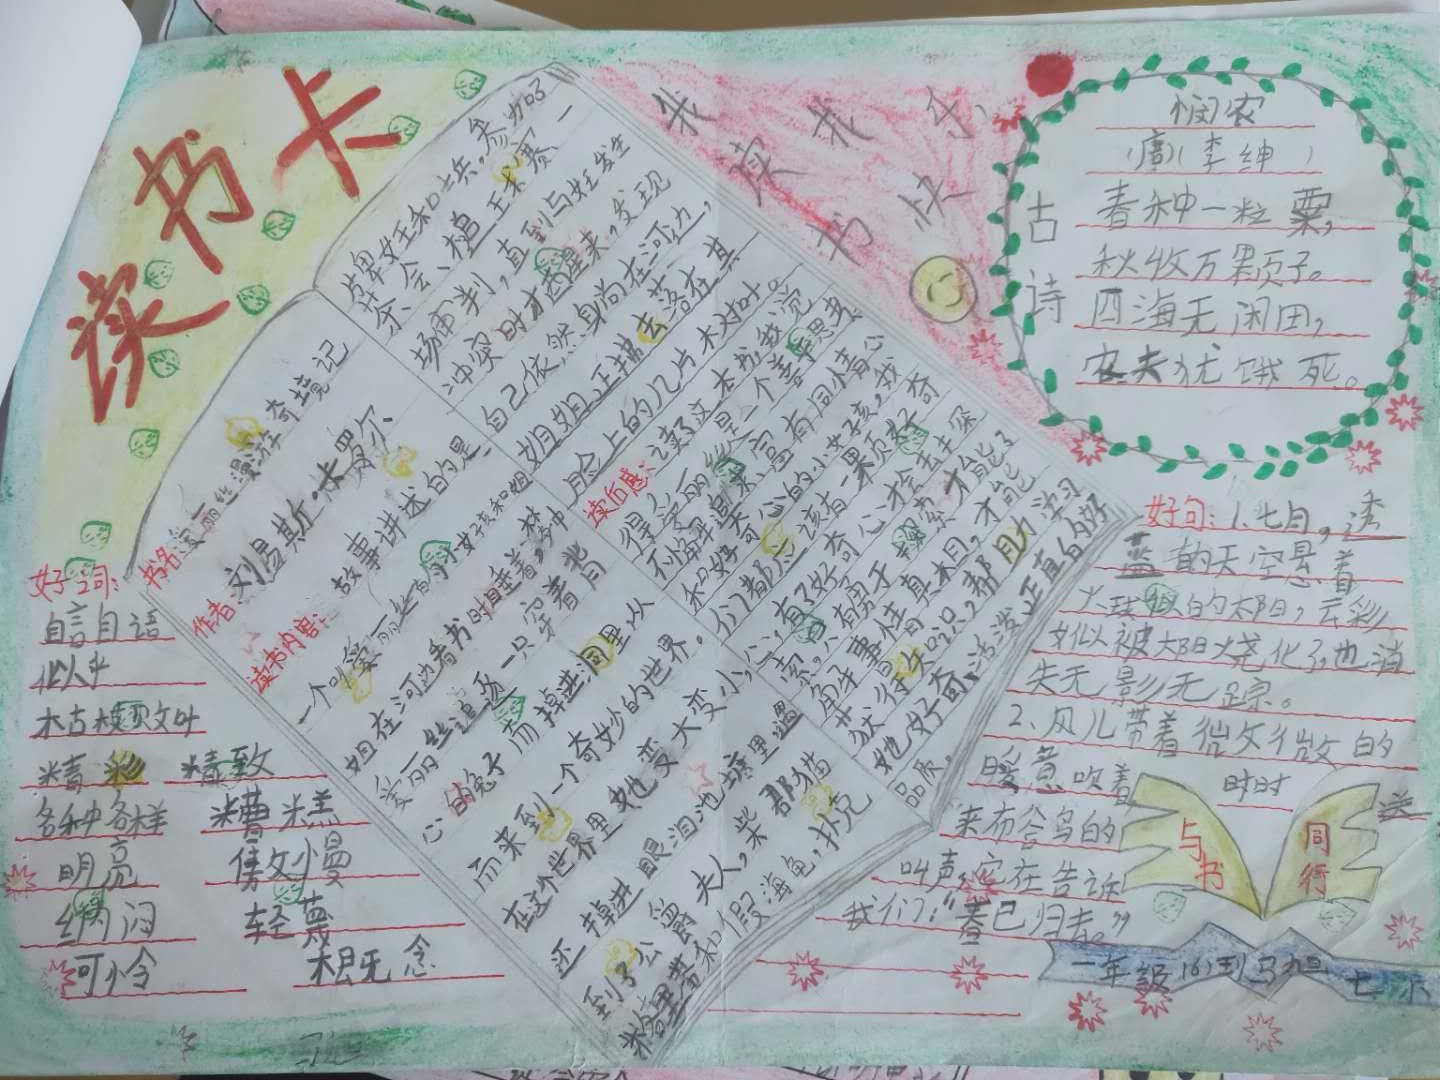 读书卡
我读书
我快乐
书名:爱丽丝漫游奇境记
作者:刘易斯·卡罗尔
读书内容:故事讲述的是
一个叫爱丽丝的小女孩和姐
姐在河边看书时睡着,梦中
爱丽丝追逐一只穿着背
心的兔子而掉进洞里,从
而来到一个奇妙的世界。
在这个世界里她变大变小,
还掉进眼泪池塘里遇
到了公爵夫人,柴郡猫
和假海龟,扑克
牌女王和士兵。参加了
茶会、槌球赛
场审判,直到与女王发生
冲突时才醒来,发现
自己依然身尚在河边,
姐姐正拂去落在其
脸上的几片木叶。
读后感:读了这本书我觉
得爱丽丝是一个善
富有同情心
和好奇心的小女孩,我
们都应该有一颗好奇
心,有了好奇心才会去探
索,只有勇于探索,才能了
解事情真相,才能
获得知识,帮助学习
她好奇,活泼,正直的好
品质。
古诗
悯农
(唐)(李绅)
春种一粒粟,
秋收万颗子。
四海无闲田,
农夫犹饿死。
好词:
自言自语
似乎
精彩 精致
各种各样 糟糕
明亮 傲慢
纳闷 轻蔑
可怜
好句:1.七月,透
蓝的天空悬着
火球似的太阳,云彩
好似被太阳烧化了,也消
失无影无踪。
2、风儿带着微微的
暖意吹着
时时
送
来布谷鸟的
叫声,它在告诉
我们:“春已归去。”
与书
同行
一年级